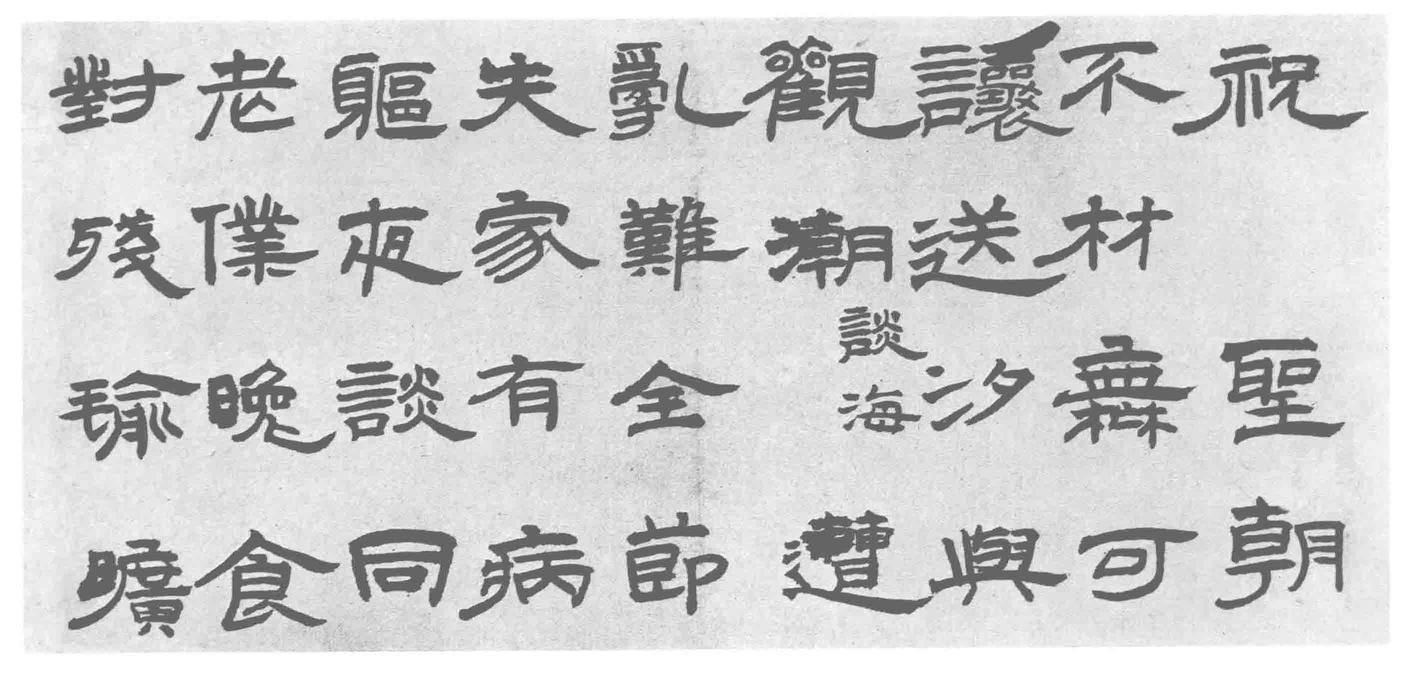 祝聖朝
不材無可
讓送汐與
觀潮談海遭
亂難全節
失家有病
軀夜談同
老僕晚食
對殘瑜曠